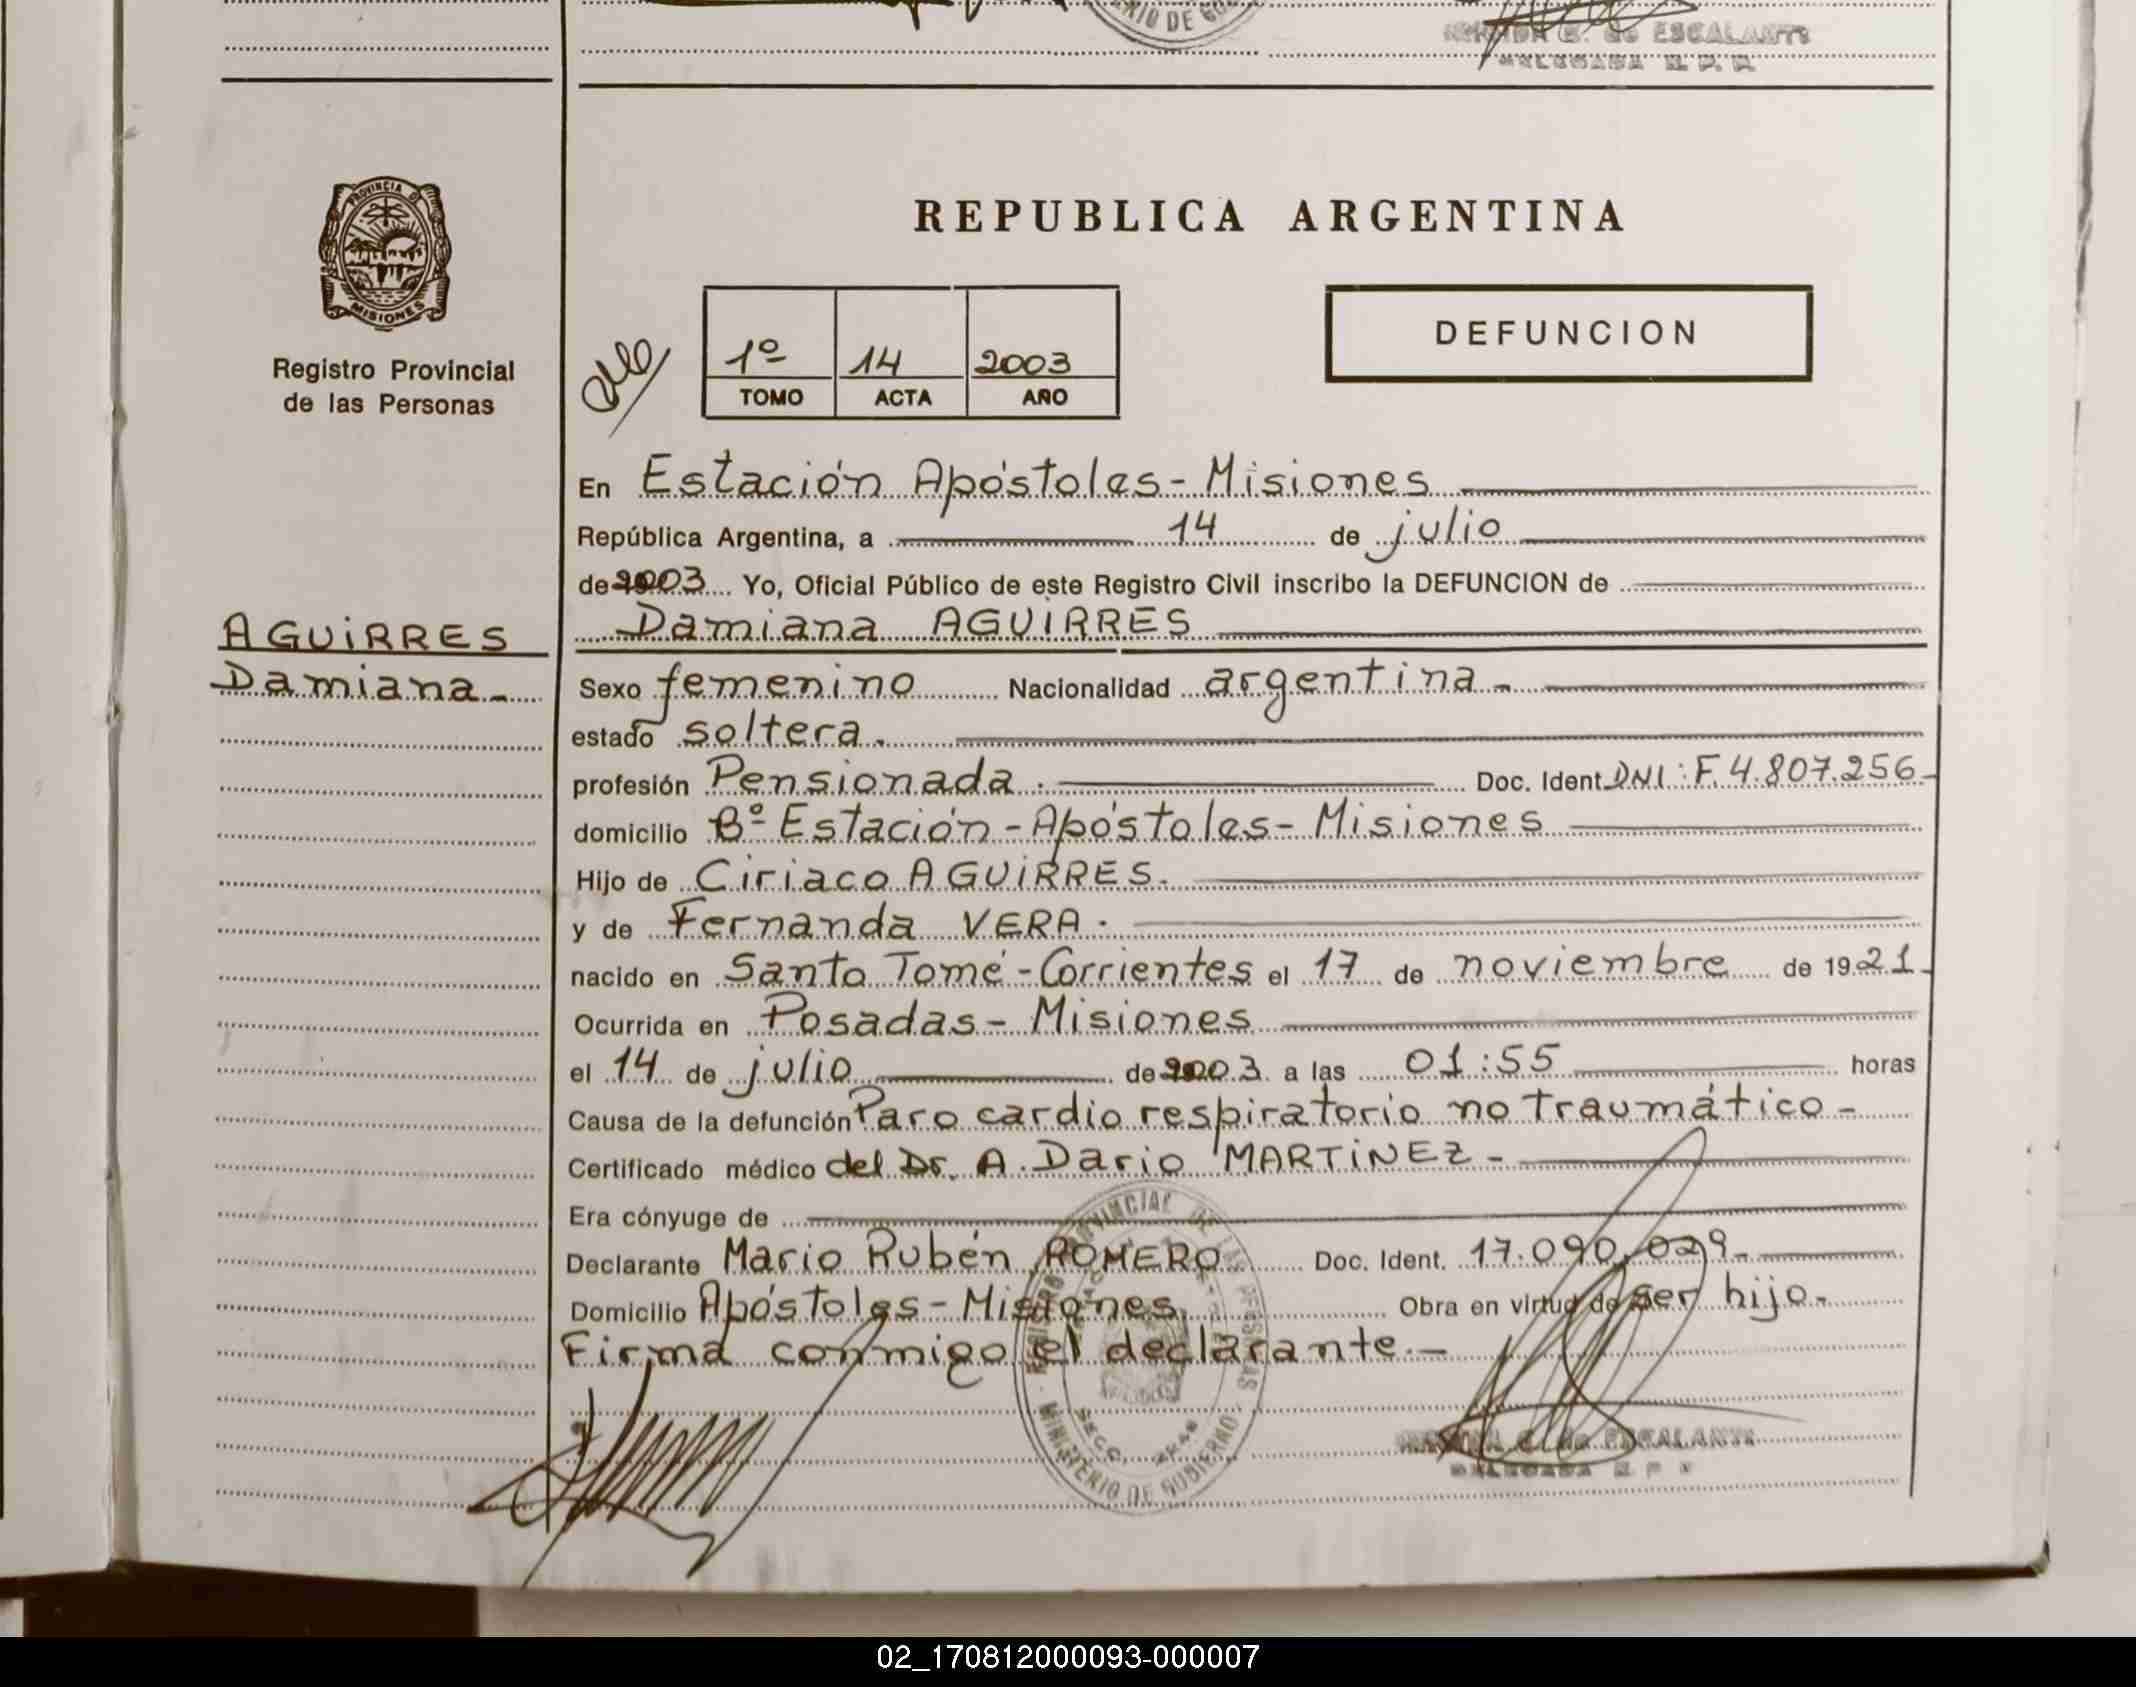 MINISTERIO DE GOBIERNO
de ESCALANTE
DELEGADA R. P. P.
PROVINCIA DE
MISIONES
Registro Provincial
de las Personas
REPUBLICA ARGENTINA
1º 14 2003
TOMO ACTA AÑO
DEFUNCION
En Estación Apóstoles - Misiones
República Argentina, a 14 de julio
de 2003 Yo, Oficial Público de este Registro Civil inscribo la DEFUNCION de
AGUIRRES
Damiana AGUIRRES
Damiana -
Sexo femenino Nacionalidad argentina -
estado soltera.
profesión Pensionada. Doc. Ident. DNI: F. 4.807.256 -
domicilio Bº Estación - Apóstoles - Misiones
Hijo de Ciriaco AGUIRRES.
y de Fernanda VERA.
nacido en Santo Tomé - Corrientes el 17 de noviembre de 1921 -
Ocurrida en Posadas - Misiones
el 14 de julio de 2003 a las 01:55 horas
Causa de la defunción Paro cardio respiratorio no traumático -
Certificado médico del Dr. A. Dario MARTINEZ -
Era cónyuge de
Declarante Mario Rubén ROMERO Doc. Ident. 17.090.029 -
Domicilio Apóstoles - Misiones. Obra en virtud de ser hijo -
Firma conmigo el declarante. -
PROVINCIAL DE LAS PERSONAS
MINISTERIO DE GOBIERNO
de ESCALANTE
DELEGADA R. P. P.
02_170812000093-000007